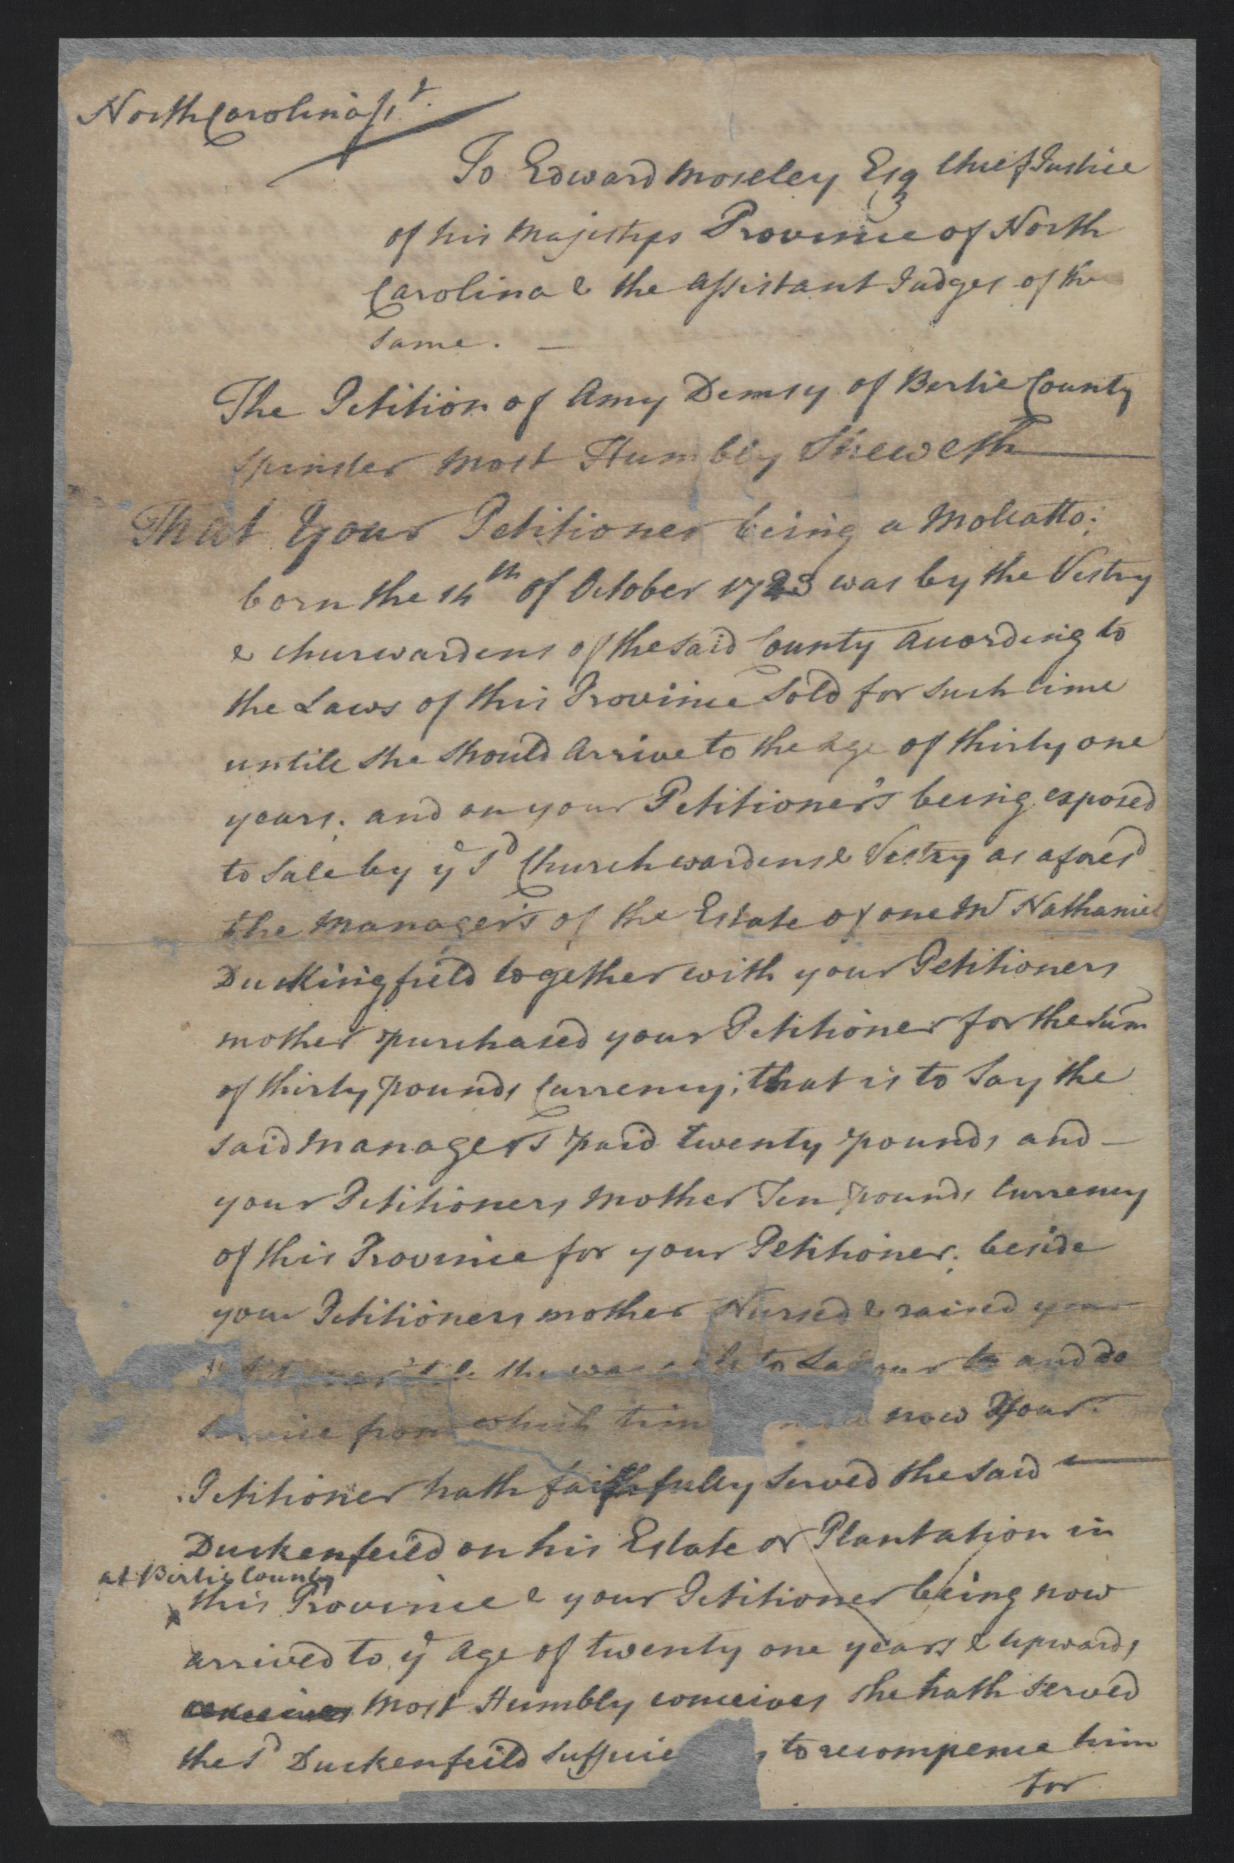 North Carolina ss^t.
To Edward Moseley Esq Chief Justice
of his Majestyes Province of North
Carolina & the Assistant Judges of the
Same. —
The Petition of Amy Demsy of Bertie County
Spinster Most Humbly Sheweth
That Your Petitioner being a Molatto;
born the 14th of October 1723 was by the Vestry
& Churwardens of the said County According to
the Laws of this Province Sold for such time
untill she should Arrive to the Age of thirty one
years. and on your Petitioner's being exposed
to Sale by ye sd Churchwardens & Vestry as aforesd
the Manager's of the Estate of one Mr Nathaniel
Duckingfield together with your Petitioners
mother purchased your Petitioner for the Sum
of thirty pounds Currency; that is to Say the
said Manager's paid twenty pounds and —
your Petitioners Mother Ten pounds Currency
of this Province for your Petitioner; beside
your Petitioners mother Nursed & raised your
she was to Labour and do
Service from which time now Your
Petitioner hath faithfully Served the said
Duckenfeild on his Estate or Plantation in
at Bertie County
this Province & your Petitioner being now
arrived to ye Age of twenty one years & upwards
Most Humbly conceives she hath Served
the sd Duckenfeild to recompence him
for